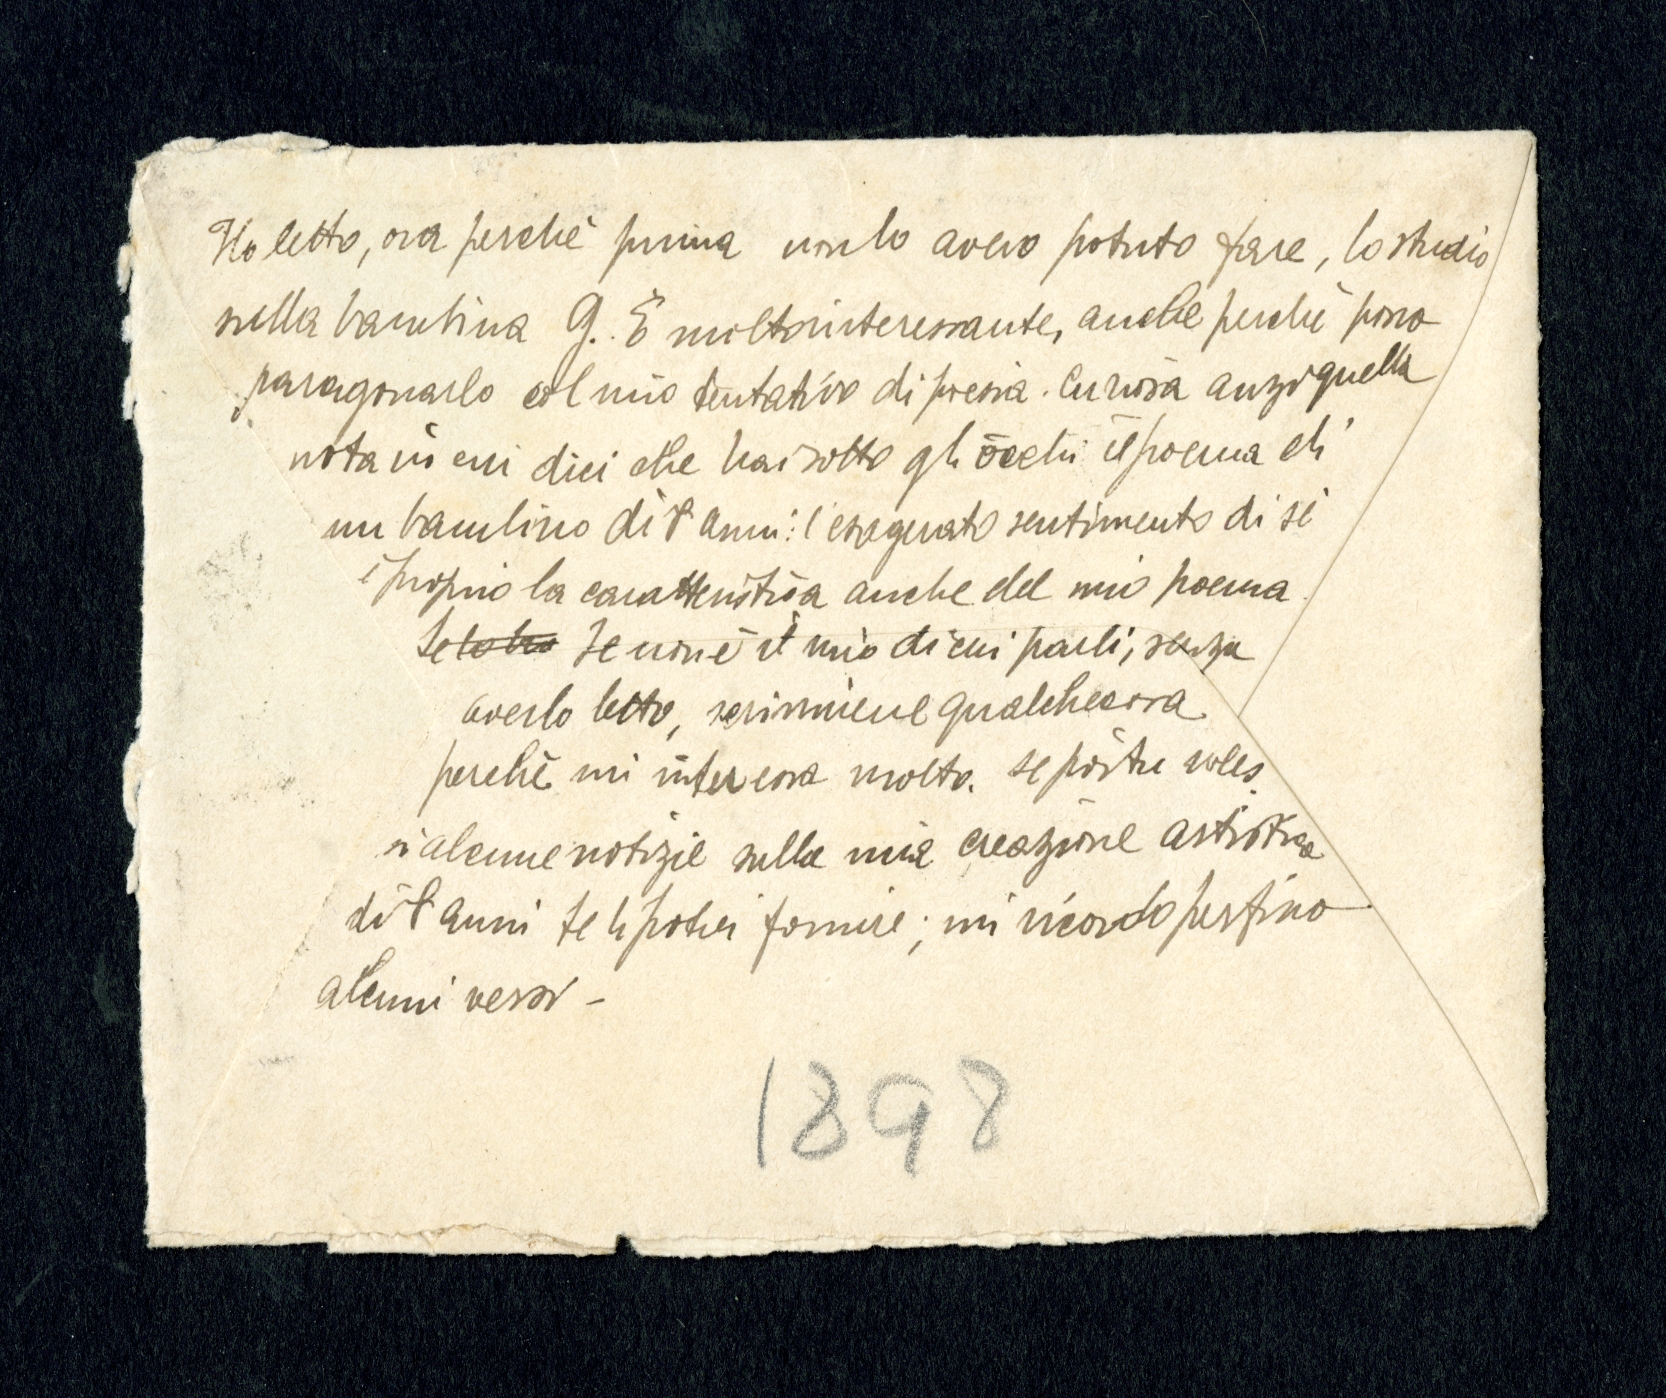 Ho letto, ora perchè prima non lo avevo potuto fare, lo studio
sulla bambina G. È molto interessante, anche perchè posso
paragonarlo col mio tentativo di poesia. Curiosa anzi quella
nota in cui dici che hai sotto gli occhi il poema di
un bambino di 8 anni: l'esagerato sentimento di sè
è proprio la caratteristica anche del mio poema.
Se lo Se non è il mio di cui parli, senza
averlo letto, scrivimene qualchecosa
perchè mi interessa molto. Se poi tu voles
si alcune notizie sulla mia creazione artistica
di 8 anni te li potrei fornire; mi ricordo perfino
alcuni versi -
1898